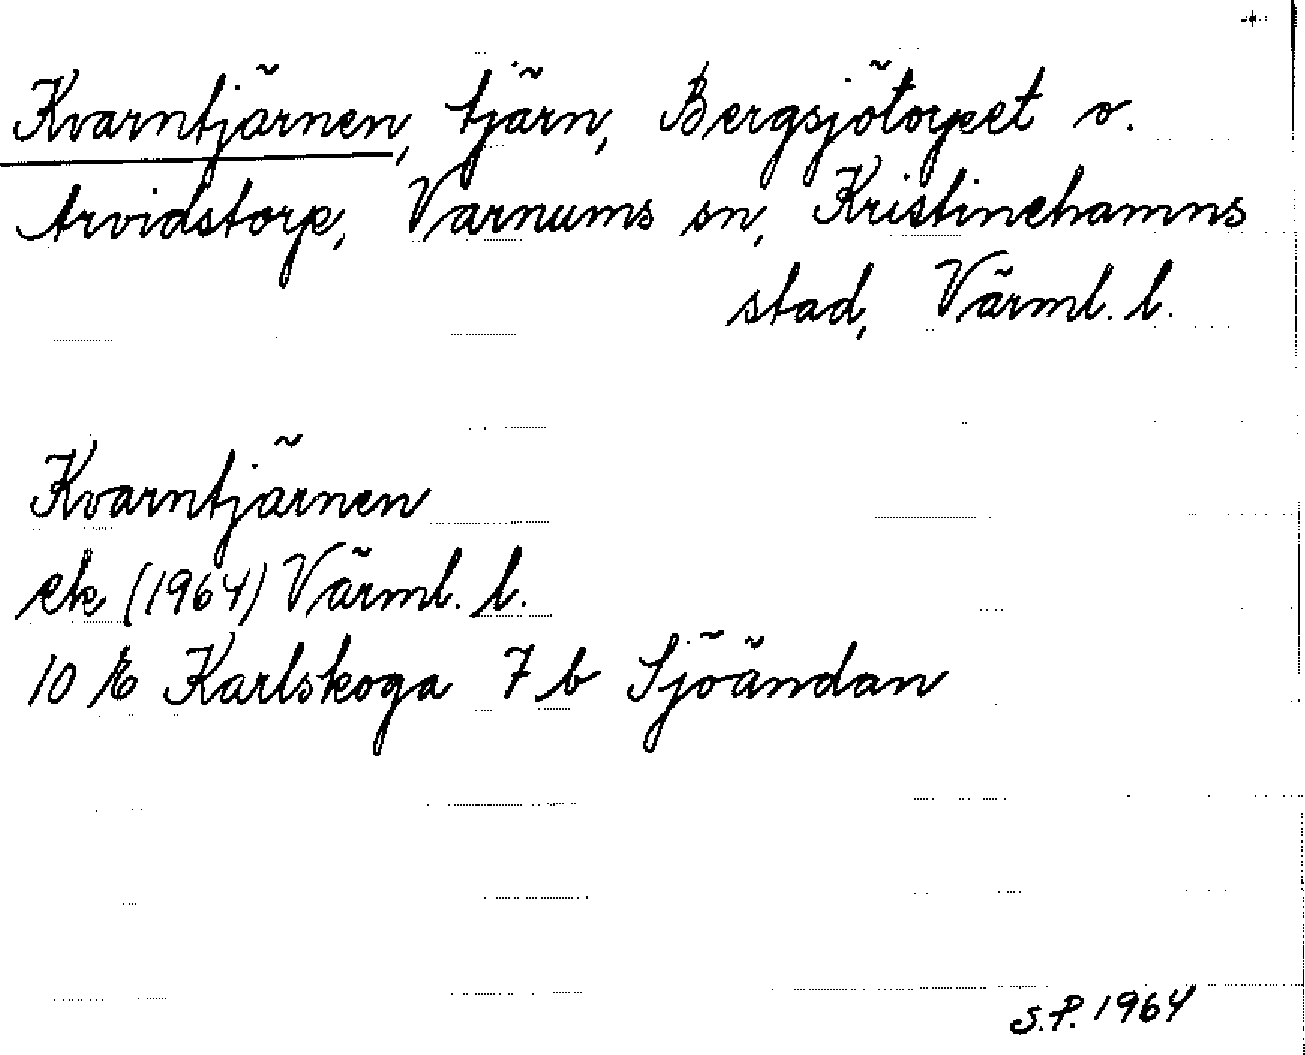 Kvarntjärnen, tjärn, Bergsjötorpet o.
Arvidstorp, Varnums sn, Kristinehamns
stad, Värml. l.
Kvarntjärnen
ek (1964) Värml. l.
10 E Karlskoga 7 b Sjöändan
S.P. 1964